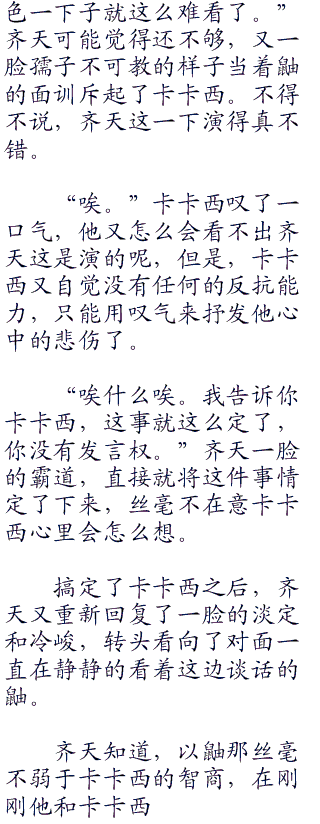 色一下子就这么难看了。”
齐天可能觉得还不够，又一
脸孺子不可教的样子当着鼬
的面训斥起了卡卡西。不得
不说，齐天这一下演得真不
错。
“唉。”卡卡西叹了一
口气，他又怎么会看不出齐
天这是演的呢，但是，卡卡
西又自觉没有任何的反抗能
力，只能用叹气来抒发他心
中的悲伤了。
“唉什么唉。我告诉你
卡卡西，这事就这么定了，
你没有发言权。”齐天一脸
的霸道，直接就将这件事情
定了下来，丝毫不在意卡卡
西心里会怎么想。
搞定了卡卡西之后，齐
天又重新回复了一脸的淡定
和冷峻，转头看向了对面一
直在静静的看着这边谈话的
鼬。
齐天知道，以鼬那丝毫
不弱于卡卡西的智商，在刚
刚他和卡卡西